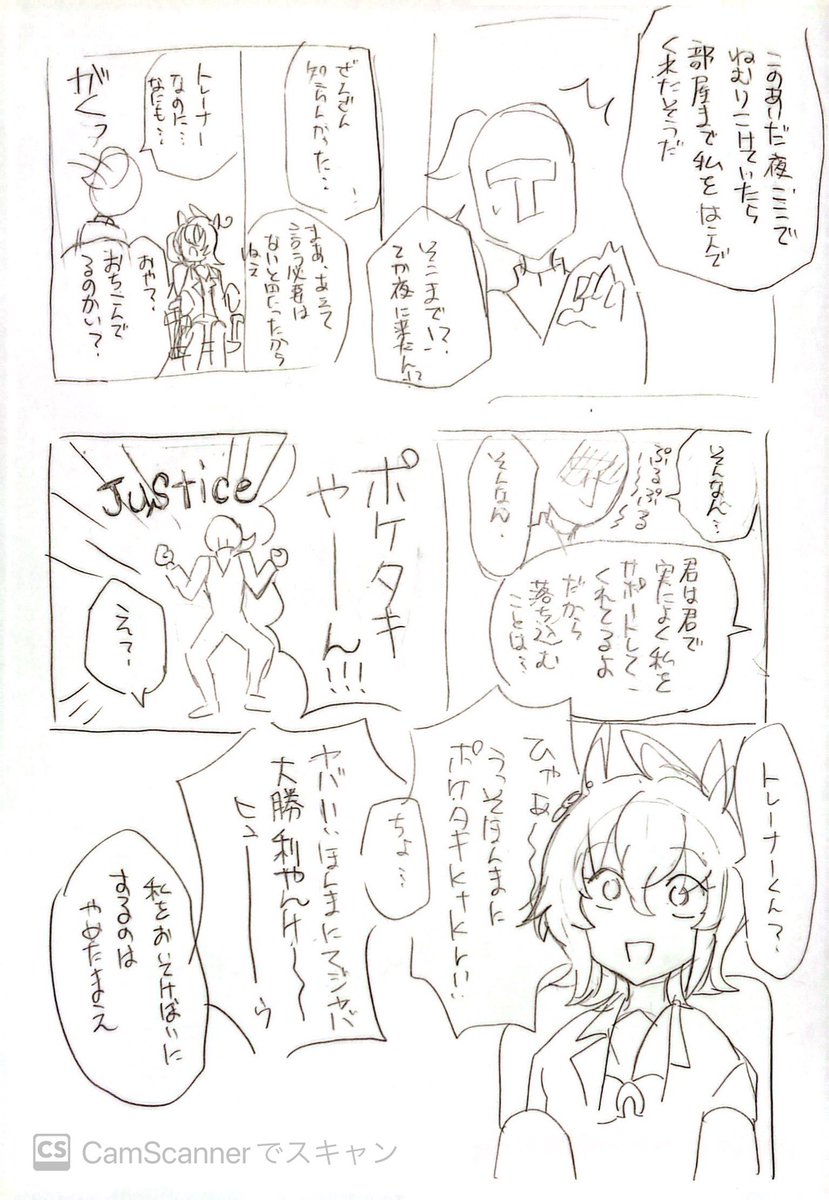 このあいだ夜、ここで
ねむりこけていたら
部屋まで私をはこんで
くれたそうだ
そこまで!?
てか夜に来たん!?
ぜんぜん
知らんかった…
まあ、あえて
言う必要は
ないと思ったから
ねえ
トレーナー
なのに…
なにも…
がくっ
おや?
おちこんで
るのかい?
そんなん…
ぷるぷる
そんなん、
君は君で
実によく私を
サポートして
くれてるよ
だから
落ち込む
ことは…
ポケタキ
やーん!!!
Justice
えっ?
トレーナーくん?
ひゃあ〜〜
うっそほんまに
ポケタキ
ちょ…
ヤバいいほんまにてジャバ
大勝利やんけ〜〜
ヒューーーゥ
私をおいてけぼりに
するのは
やめたまえ
CS CamScannerでスキャン